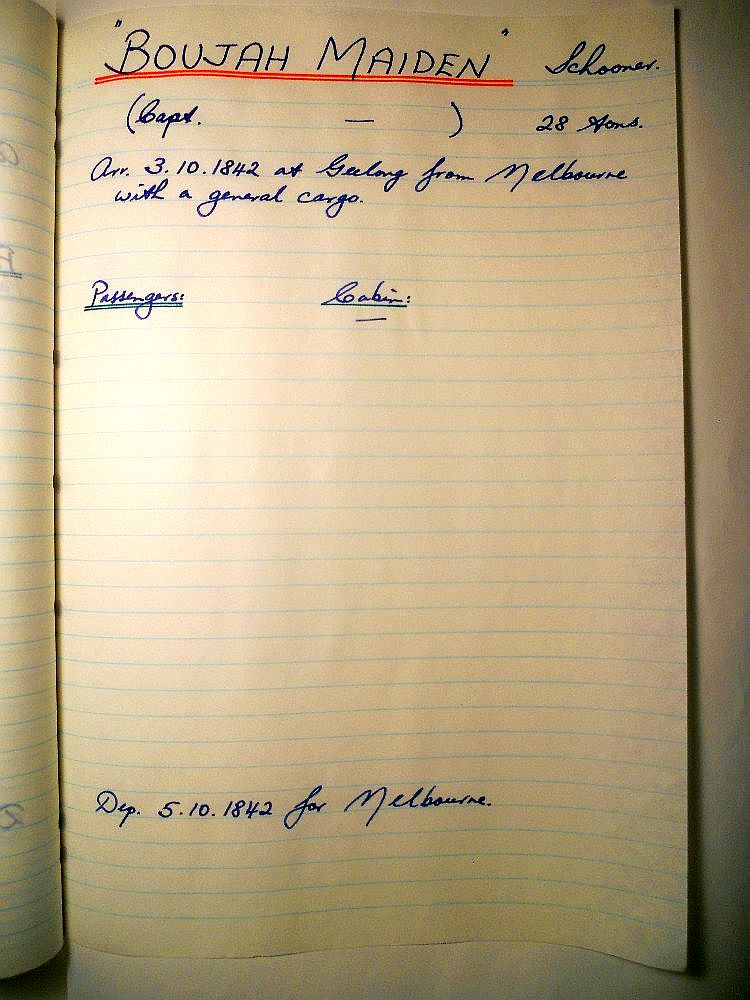 "BOUJAH MAIDEN" Schooner.
(Capt. — ) 28 tons.
Arr. 3.10.1842 at Geelong from Melbourne
with a general cargo.
Passengers: Cabin:
—
Dep. 5.10.1842 for Melbourne.